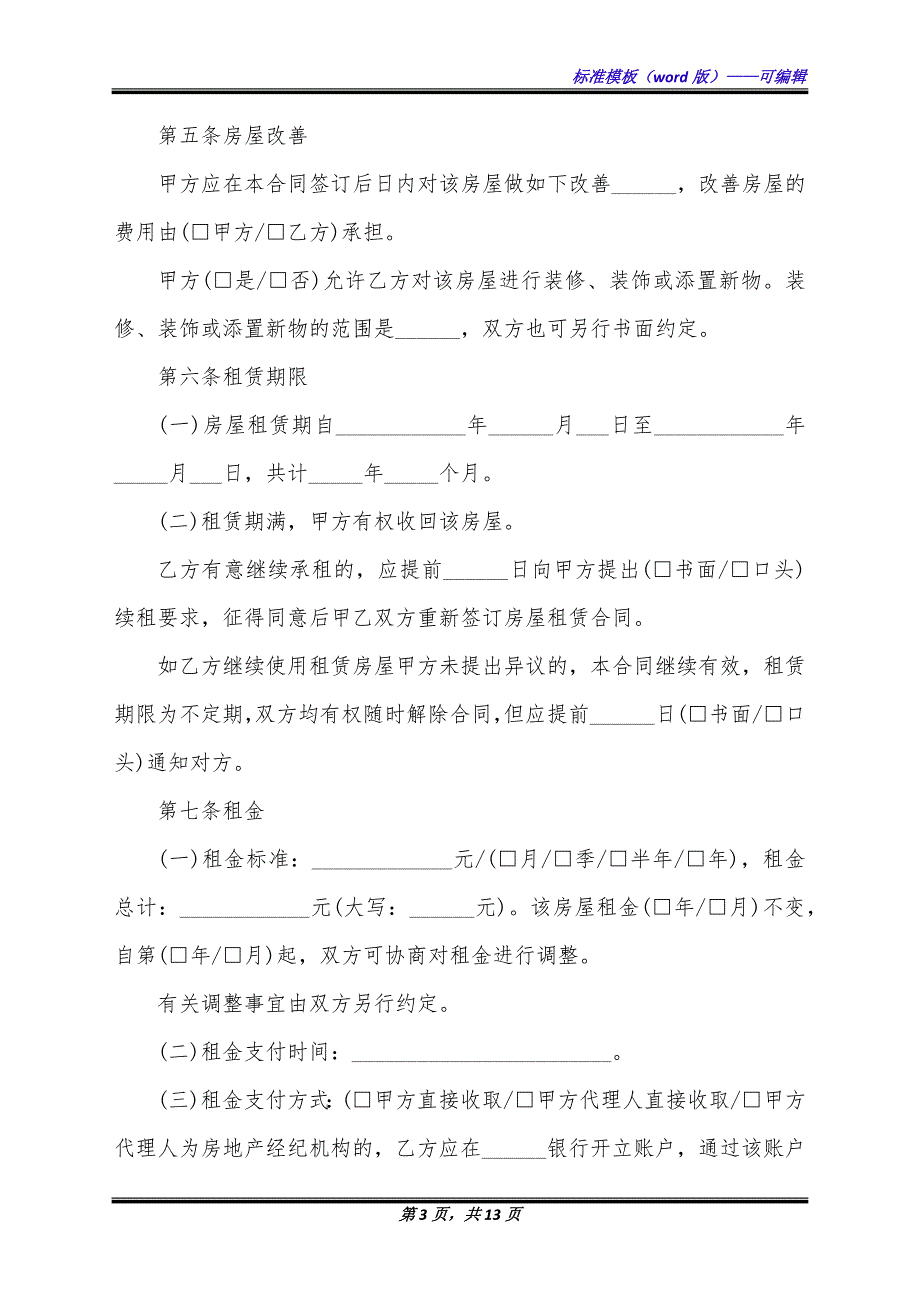 标准模板（word 版）——可编辑
第五条房屋改善
甲方应在本合同签订后日内对该房屋做如下改善______，改善房屋的
费用由(□甲方/□乙方)承担。
甲方(□是/□否)允许乙方对该房屋进行装修、装饰或添置新物。装
修、装饰或添置新物的范围是______，双方也可另行书面约定。
第六条租赁期限
(一)房屋租赁期自____________年______月___日至____________年
_____月___日，共计_____年_____个月。
(二)租赁期满，甲方有权收回该房屋。
乙方有意继续承租的，应提前______日向甲方提出(□书面/□口头)
续租要求，征得同意后甲乙双方重新签订房屋租赁合同。
如乙方继续使用租赁房屋甲方未提出异议的，本合同继续有效，租赁
期限为不定期，双方均有权随时解除合同，但应提前______日(□书面/□口
头)通知对方。
第七条租金
(一)租金标准：_____________元/(□月/□季/□半年/□年)，租金
总计：____________元(大写：______元)。该房屋租金(□年/□月)不变，
自第(□年/□月)起，双方可协商对租金进行调整。
有关调整事宜由双方另行约定。
(二)租金支付时间：________________________。
(三)租金支付方式：(□甲方直接收取/□甲方代理人直接收取/□甲方
代理人为房地产经纪机构的，乙方应在______银行开立账户，通过该账户
第 3 页，共 13 页